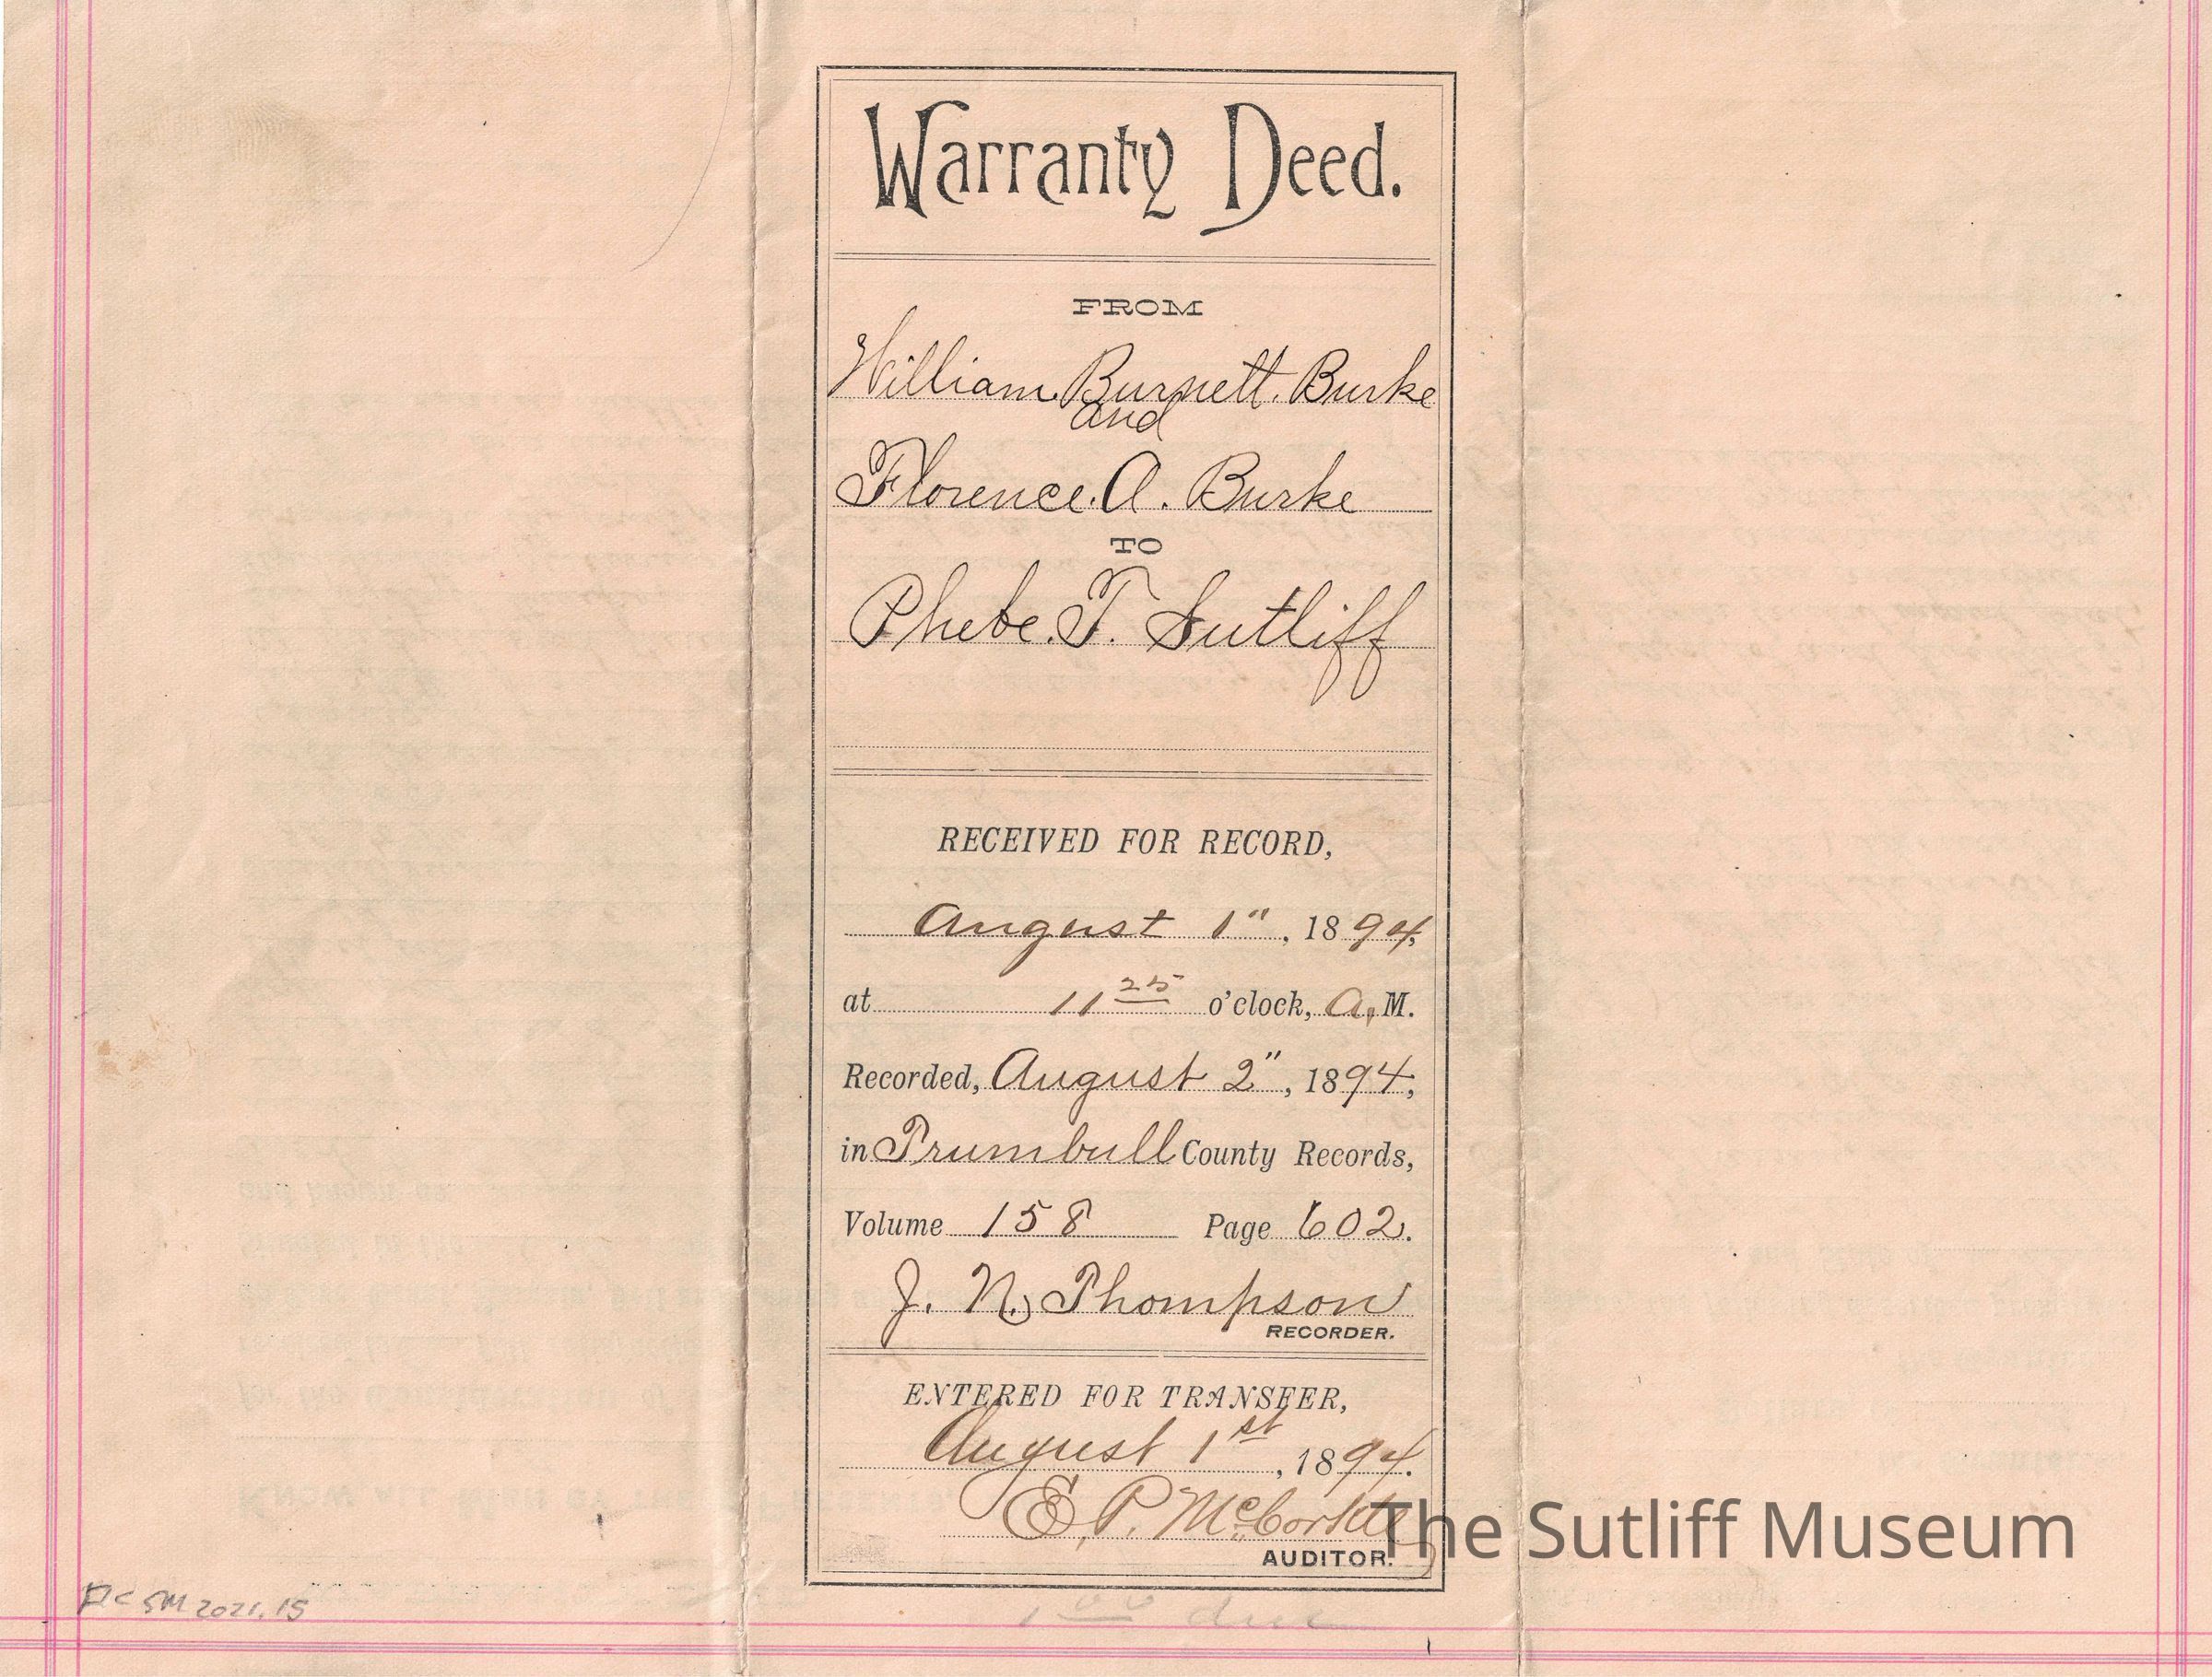 Warranty Deed.
FROM
William Burnett. Burke
and
Florence. A. Burke
TO
Phebe. T. Sutliff
RECEIVED FOR RECORD,
August 1", 1894,
at 11 25 o'clock, A. M.
Recorded, August 2", 1894,
in Trumbull County Records,
Volume 158 Page 602.
J. N. Thompson
RECORDER.
ENTERED FOR TRANSFER,
August 1st, 1894.
E. P. 
AUDITOR.
The Sutliff Museum
SM 2021.15
1 00 due